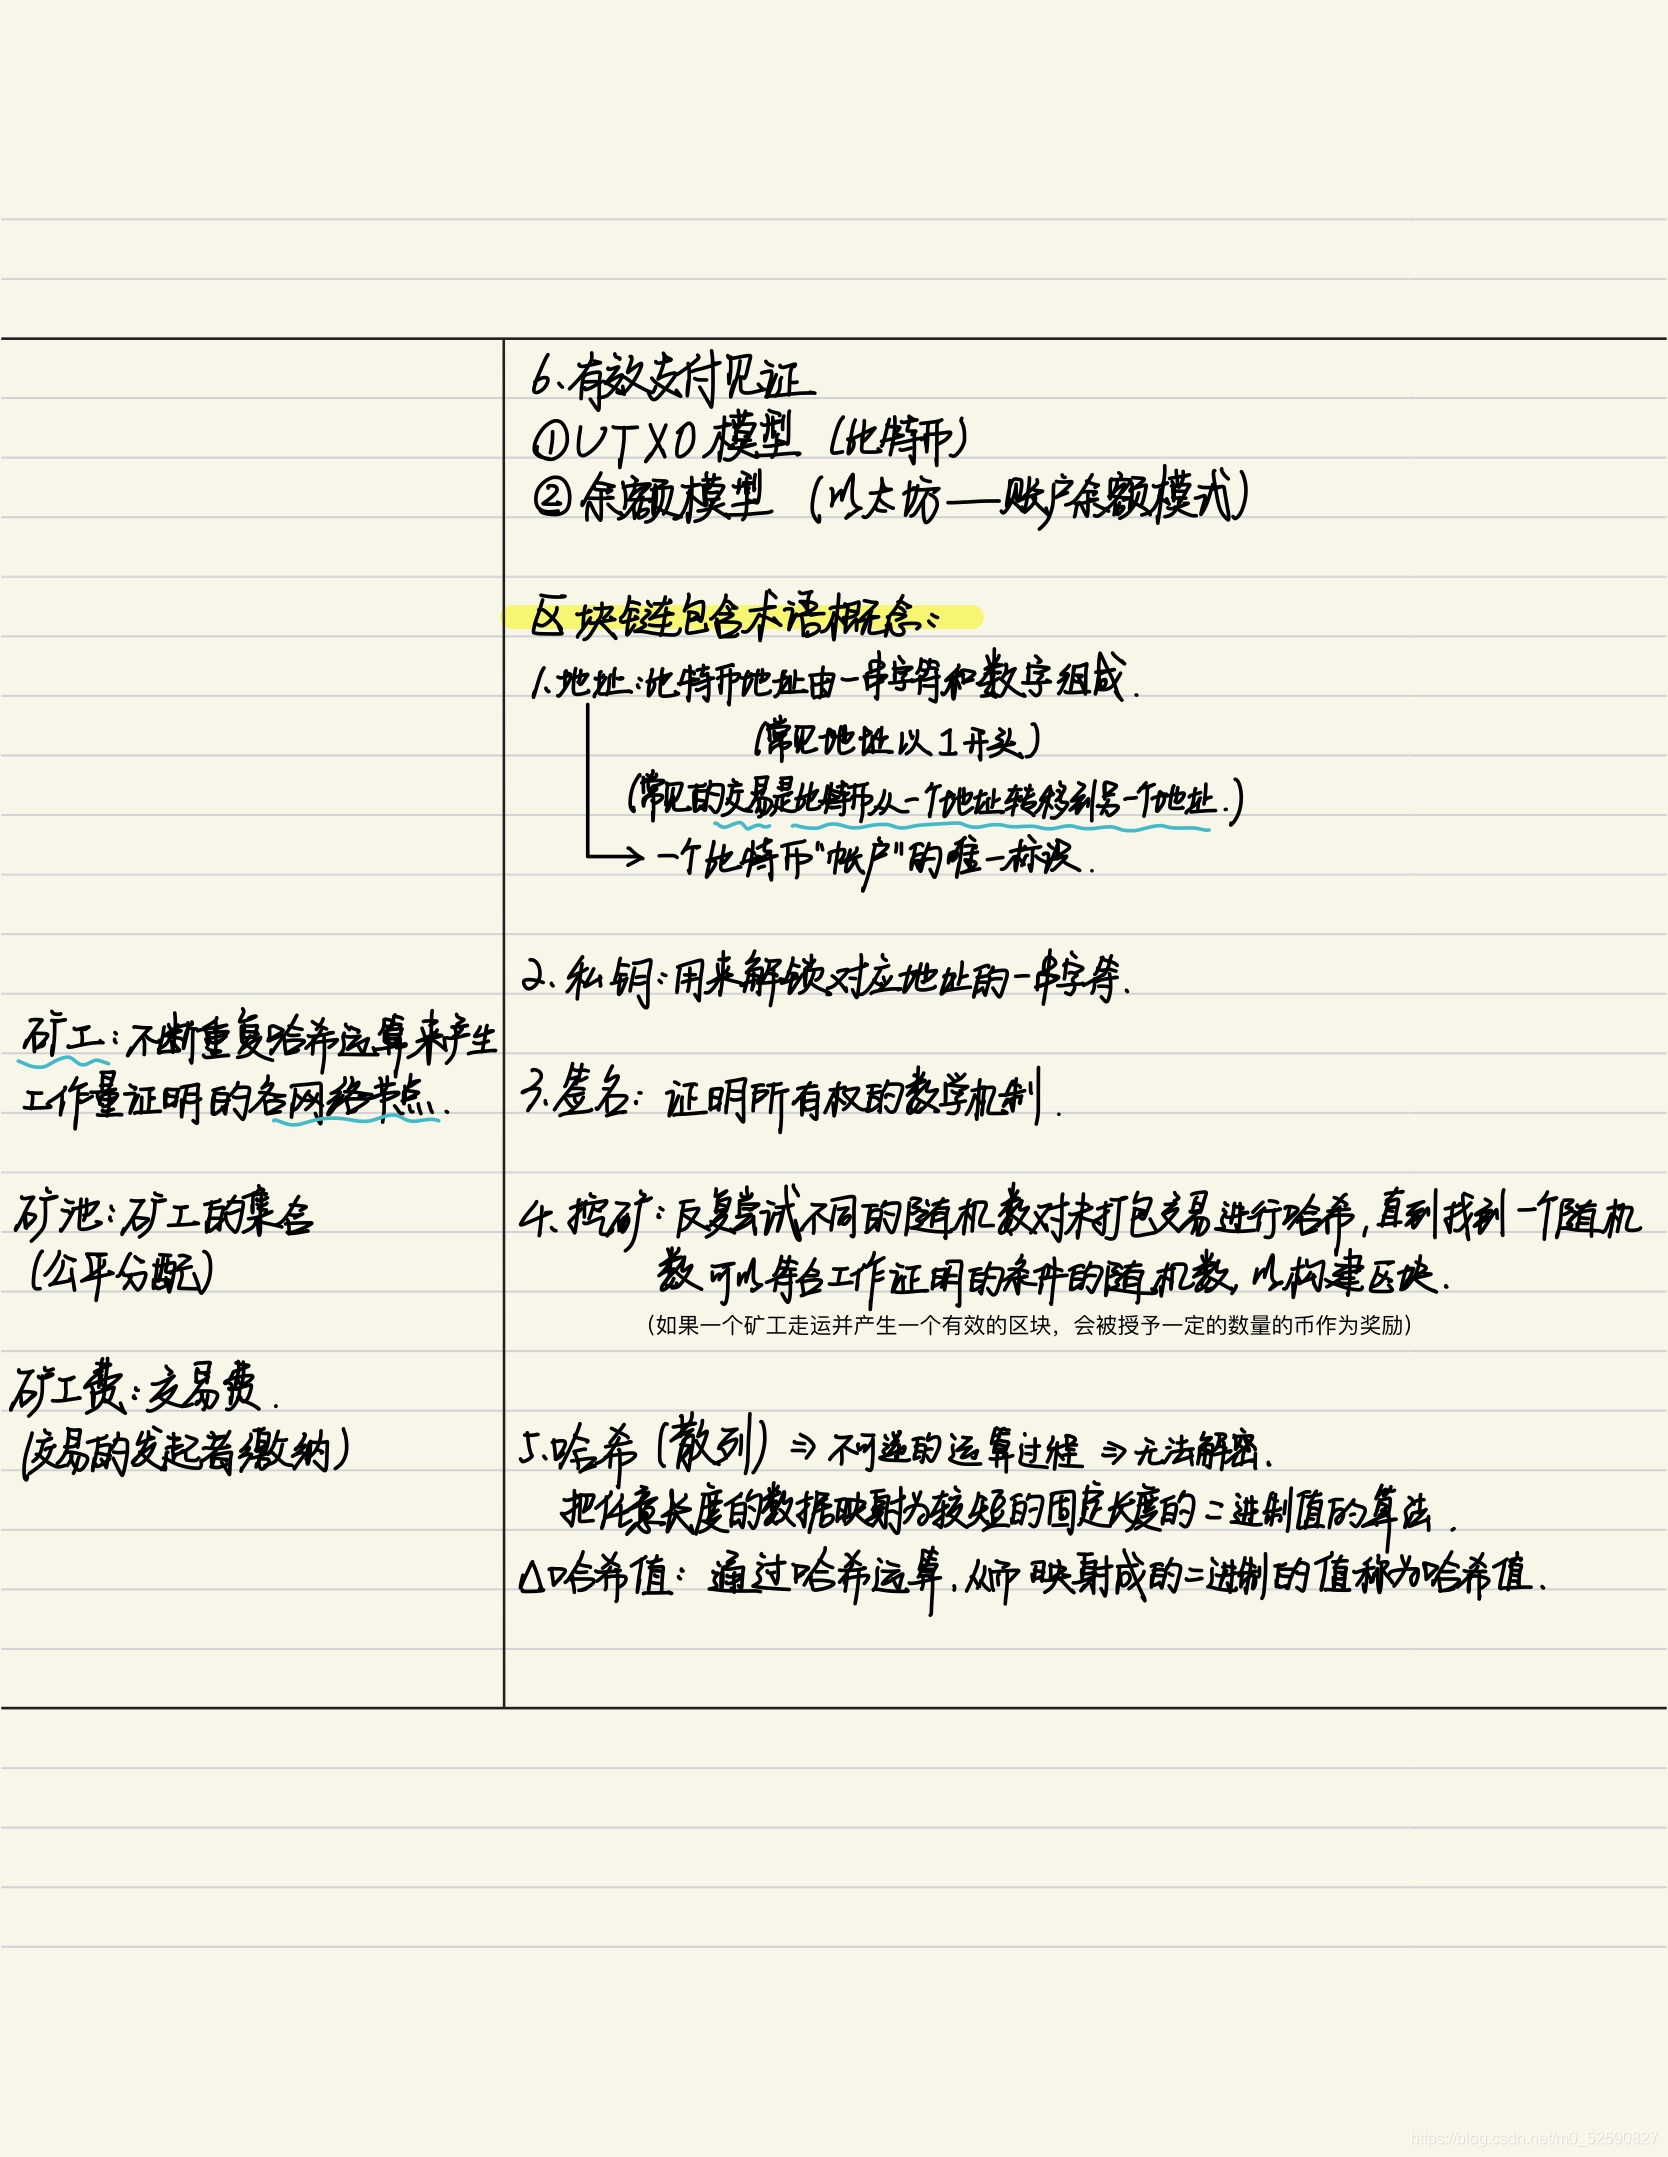 6.有效支付见证
①UTXO模型（比特币）
②余额模型（以太坊——账户余额模式）
区块链包含术语概念：
1.地址：比特币地址由一串字符和数字组成.
（常见地址以1开头）
（常见的交易是比特币从一个地址转移到另一个地址.）
一个比特币“帐户”的唯一标识.
2.私钥：用来解锁对应地址的一串字符.
矿工：不断重复哈希运算来产生
工作量证明的各网络节点.
3.签名：证明所有权的数学机制.
矿池：矿工的集合
（公平分配）
4.挖矿：反复尝试不同的随机数对未打包交易进行哈希，直到找到一个随机
数可以符合工作证明的条件的随机数，以构建区块.
（如果一个矿工走运并产生一个有效的区块，会被授予一定的数量的币作为奖励）
矿工费：交易费.
（交易的发起者缴纳）
5.哈希（散列）⇒不可逆的运算过程⇒无法解密.
把任意长度的数据映射为较短的固定长度的二进制值的算法.
△哈希值：通过哈希运算，从而映射成的二进制的值称为哈希值.
https://blog.csdn.net/m0_52590827